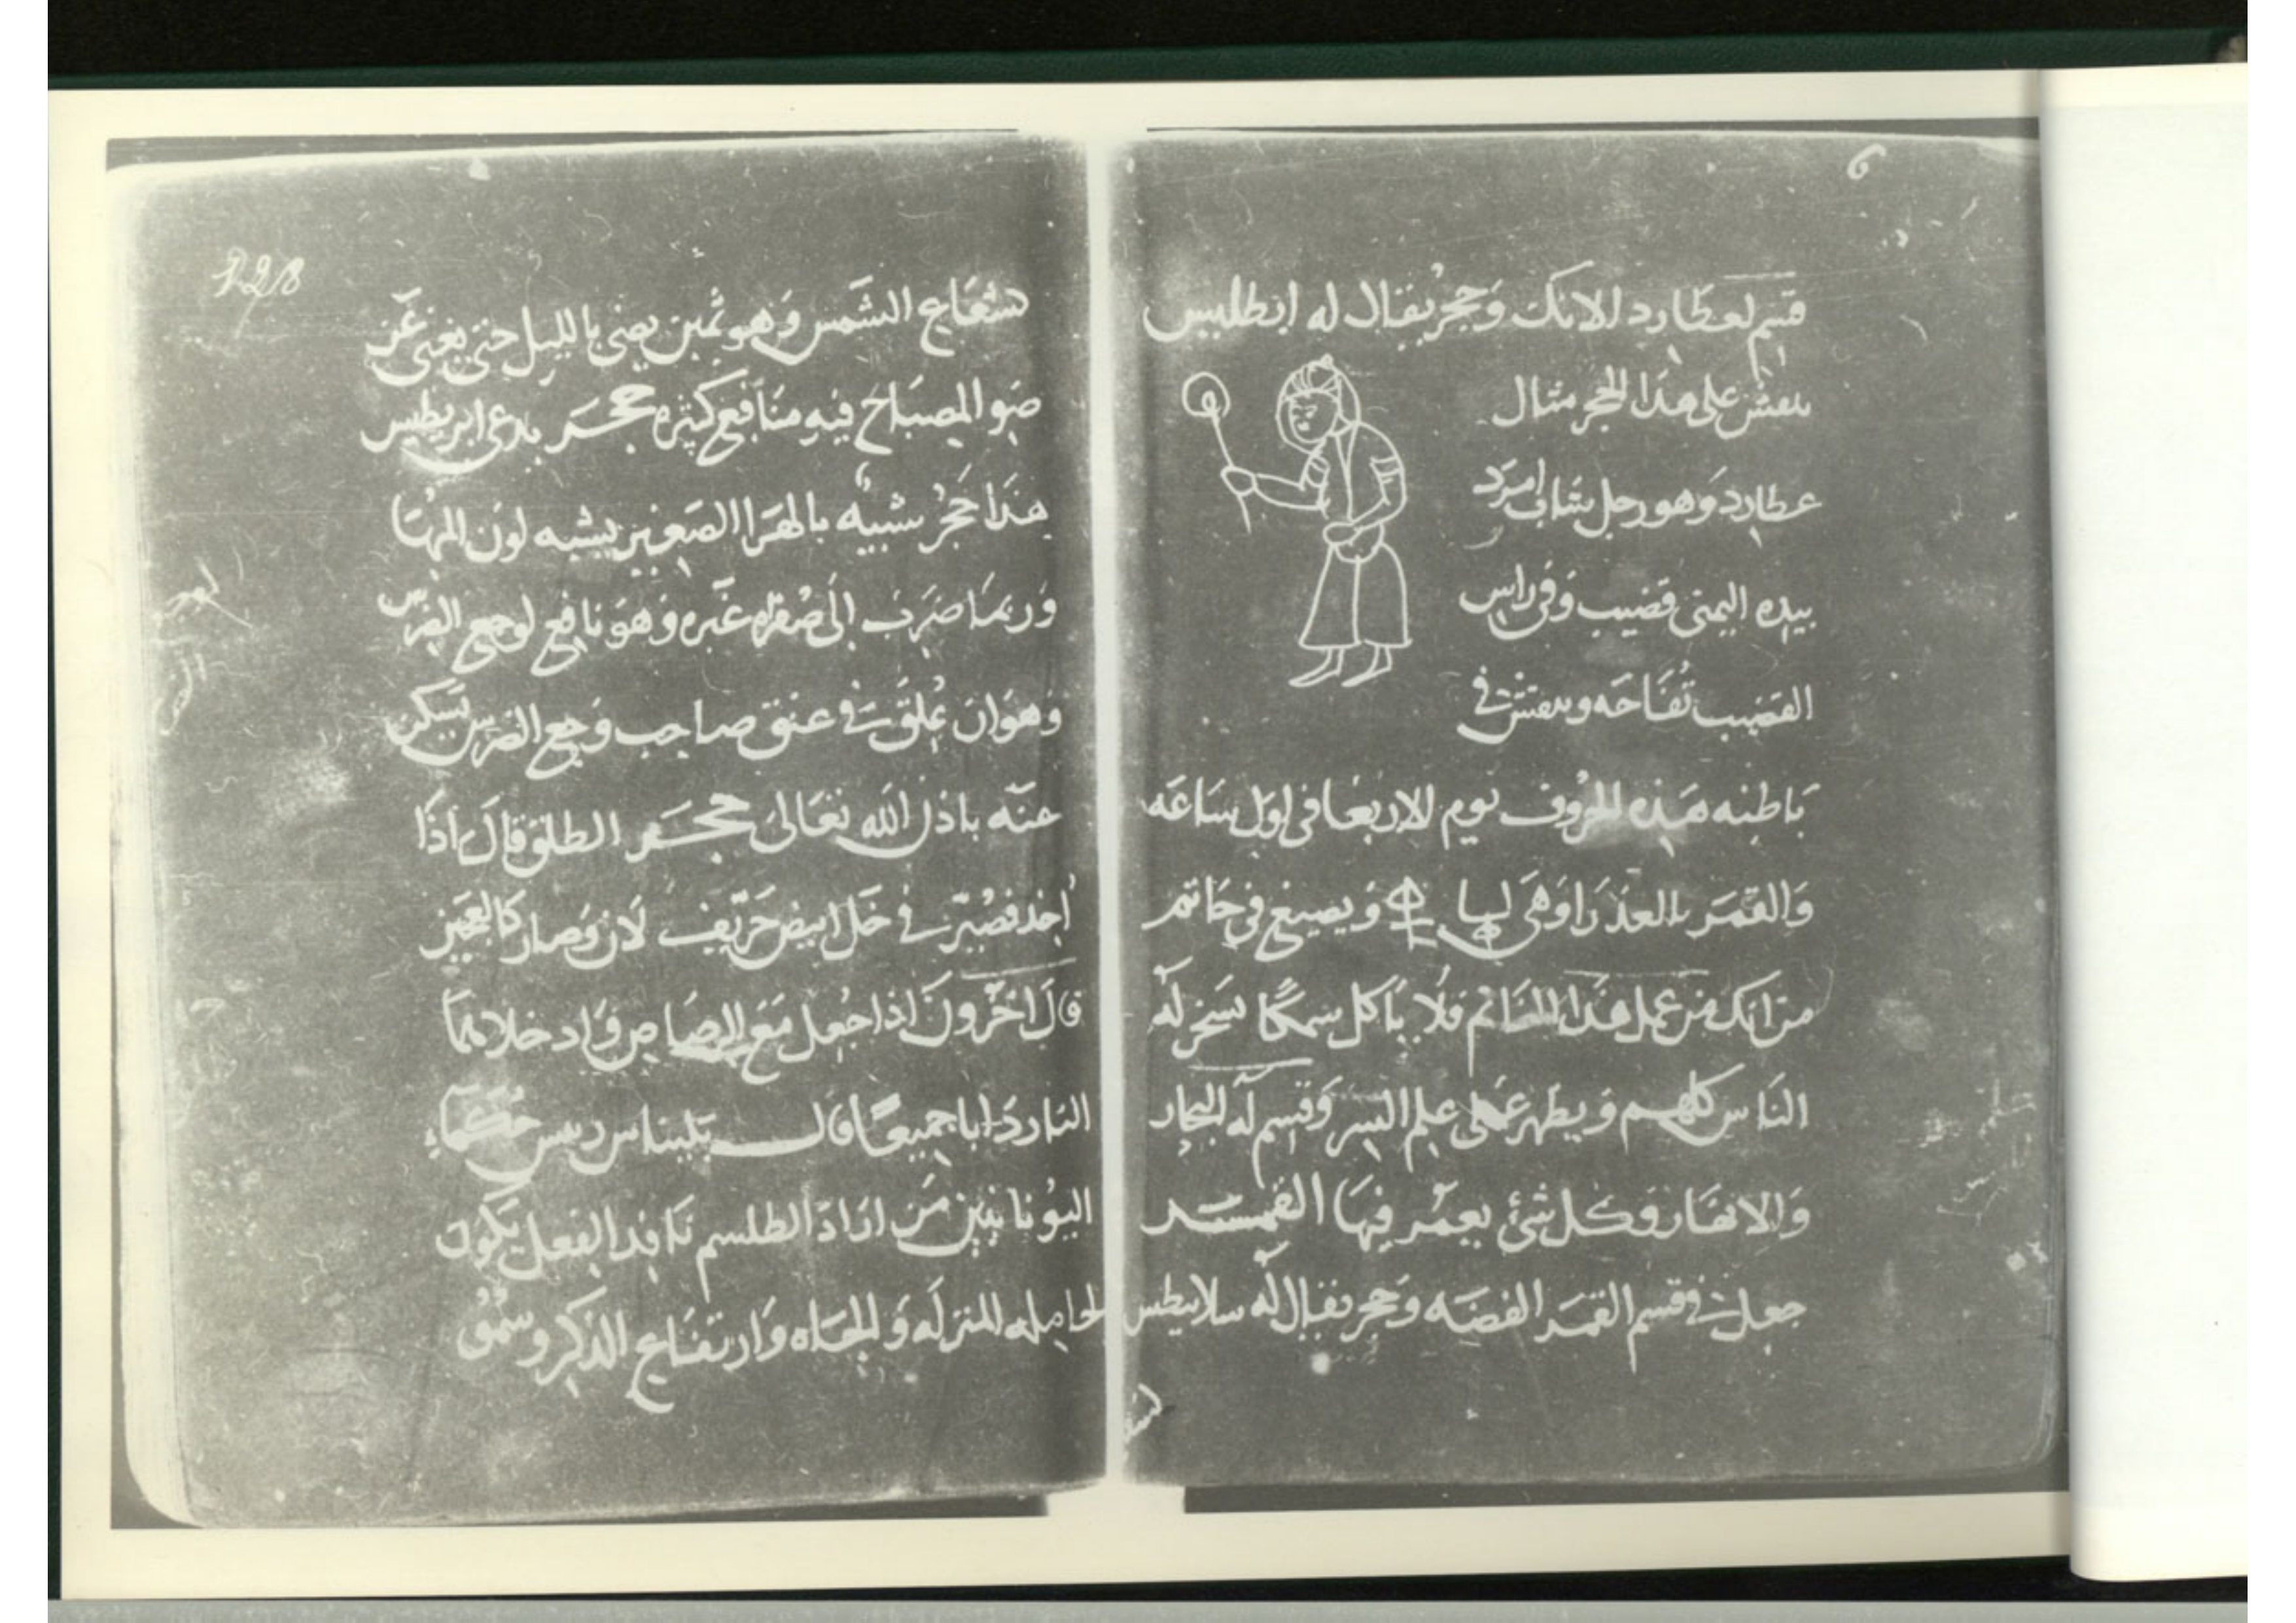 قسم لعطارد الانك وحجر يقال له انطليس
ينقش على هذا الحجر مثال
عطارد وهو رجل شاب امرد
بيده اليمنى قضيب وفي راس
القضيب تفاحه وينقش في
باطنه هذه الحروف يوم الاربعا في اول ساعه
والقمر بالعذرا وهي ويصيغ في خاتم
من انك من عمل هذا الخاتم فلا ياكل سمكا تسخر له
الناس كلهم ويظهر على علم السر وقسم له البحار
والانهار وكل شئ يعمر فيها القمر
جعل في قسم القمر الفضه وحجر يقال له سلانيطس
228
شعاع الشمس وهو ثمين يضي بالليل حتى يغني عن
ضو المصباح فيه منافع كثيره حجر يدعى ابريطيس
هذا حجر شبيه يشبه لون المها
وربما ضرب الى صفره غبره وهو نافع لوجع الضرس
وهو ان يعلق في عنق صاحب وجع الضرس يسكن
عنه باذن الله تعالى حجر الطلق قال اذا
اخذ فصير في خل ابيض حريف لان وصار كالعجين
قال اخرون اذا جعل مع الرصاص وادخلا بهما
النار ذابا جميعا قال بليناس ريس حكماء
اليونانيين من اراد الطلسم نافذ الفعل يكون
لحامله المنزله والجاه وارتفاع الذكر وسمو